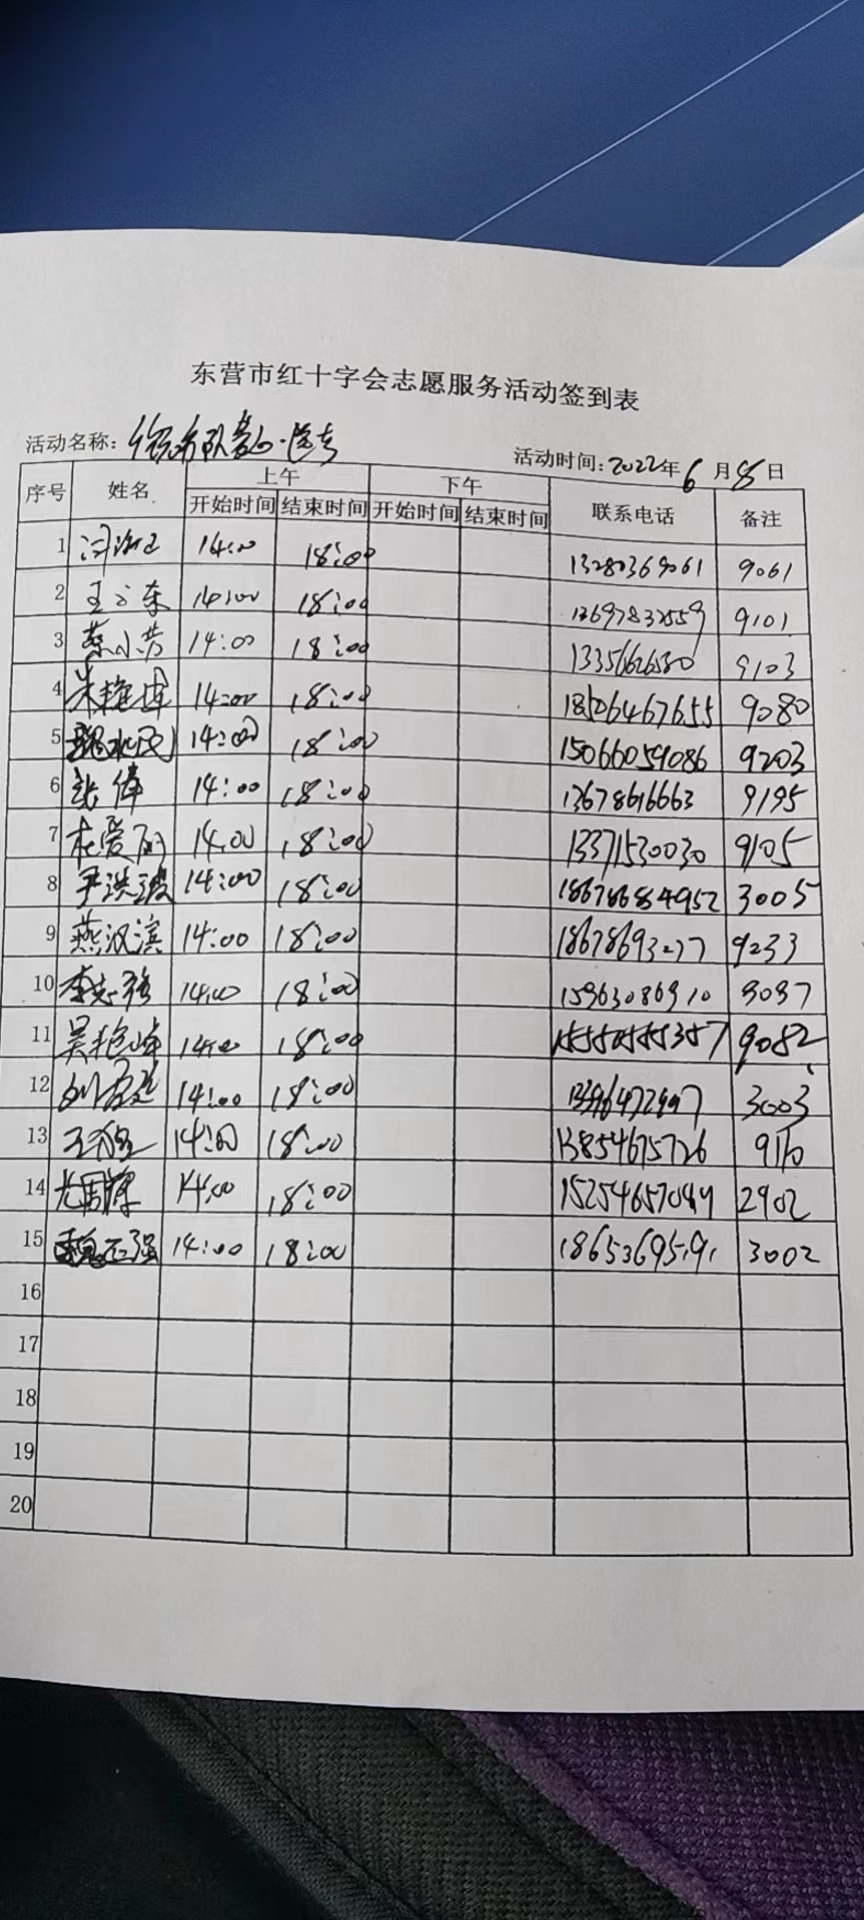 东营市红十字会志愿服务活动签到表
活动名称: 活动时间:2022年6月8日
序号 姓名 上午 下午 联系电话 备注
开始时间 结束时间 开始时间 结束时间
1 14:00 18:00 13280369061 9061
2 14:00 18:00 9101
3 燕小芳 14:00 18:00 13356626580 9103
4 朱艳博 14:00 18:00 18506467655 9080
5 14:00 18:00 15066059086 9203
6 14:00 18:00 13678616663 9195
7 杜爱丽 14:00 18:00 13371530030 9105
8 尹洪波 14:00 18:00 3005
9 燕汉滨 14:00 18:00 18678693277 9233
10 李志强 14:00 18:00 15963086910
11 吴艳峰 14:00 18:00 9082
12 14:00 18:00 3003
13 14:00 18:00 13854675726
14 14:00 18:00 2902
15 魏石强 14:00 18:00 18653695191 3002
16
17
18
19
20